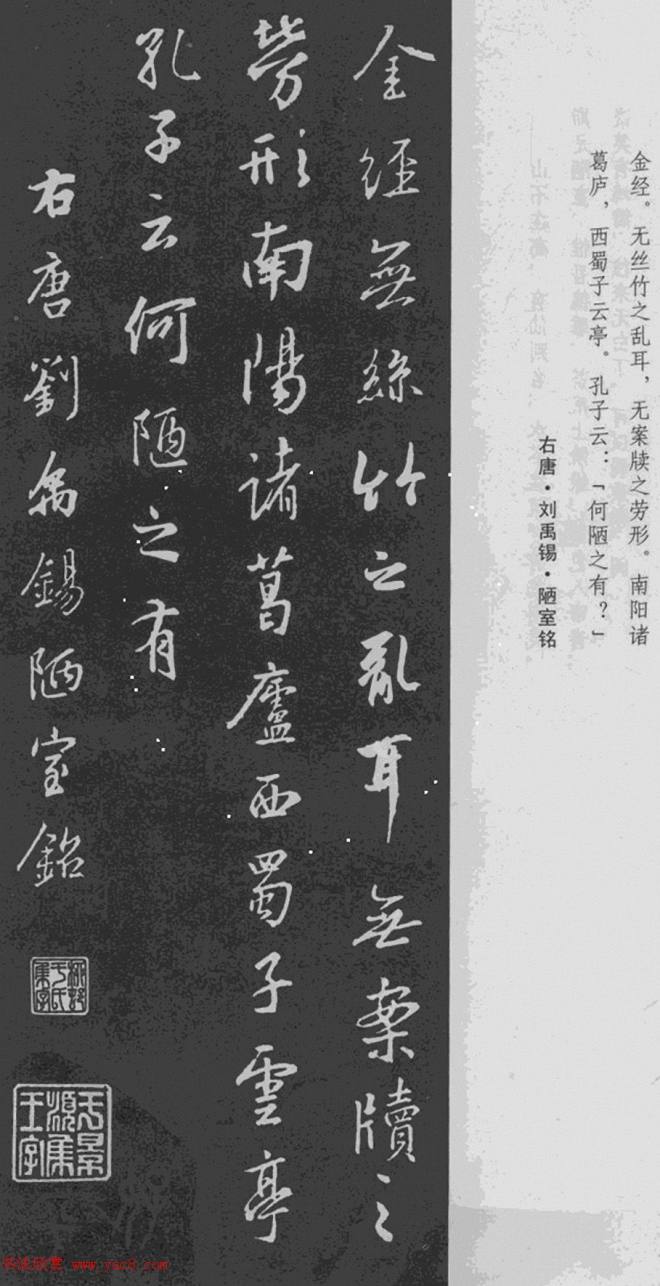 金经。无丝竹之乱耳，无案牍之劳形。南阳诸
葛庐，西蜀子云亭。孔子云：「何陋之有？」
右唐·刘禹锡·陋室铭
金經無絲竹之亂耳無案牘之
勞形南陽諸葛廬西蜀子雲亭
孔子云何陋之有
右唐劉禹錫陋室銘
书法欣赏 www.yac8.com